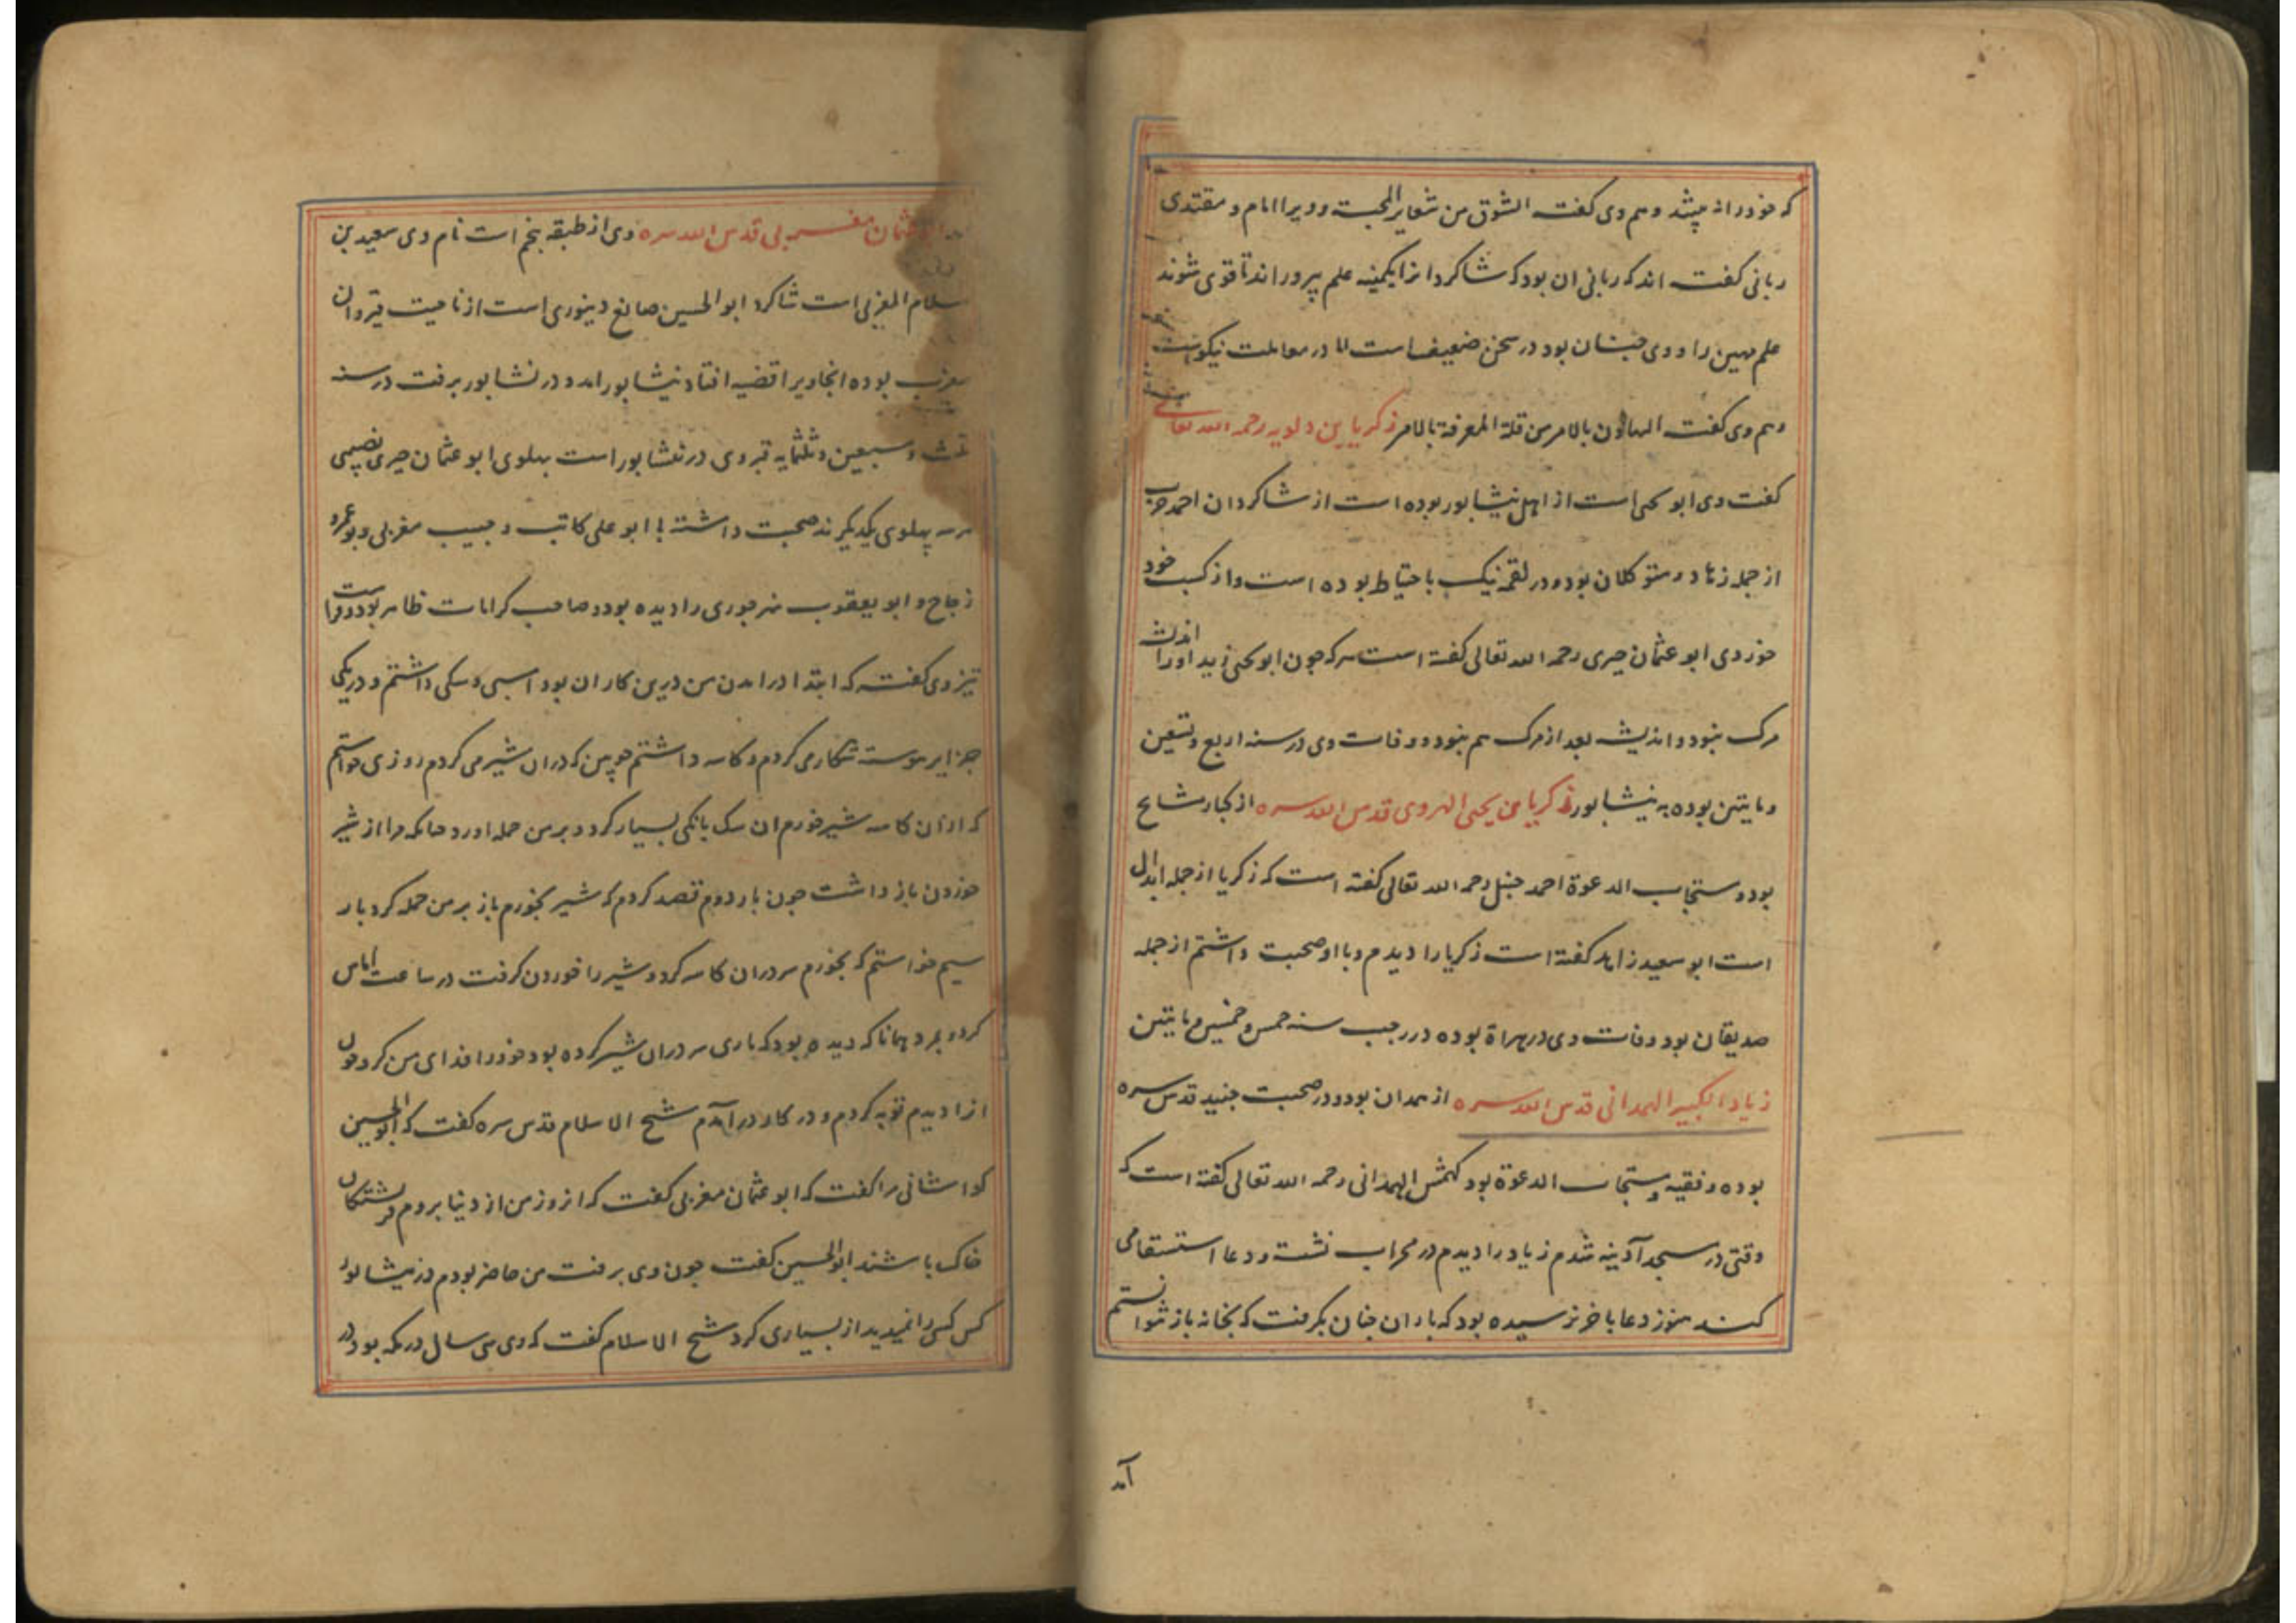 که خود را نه میشد و هم وی گفت الشوق من شعایر المحبت و ویرا امام و مقتدی
ربانی گفت اند که ربانی ان بود که شاکردانرا بکمینه علم پروراند تا قوی شوند
علم مهین را و وی چنان بود در سخن ضعیف است اما در معاملت نیکوست
و هم وی گفت التهاون بالامر من قلة المعرفة بالامر زکریا بن دلویه رحمه الله تعالی
گفت وی ابو یحیی است از اهل نیشابور بوده است از شاکردان احمد حرب
از جمله زهاد و متوکلان بود و در لقمه نیک با حتیاط بوده است و از کسب خود
خوردی ابو عثمان حیری رحمه الله تعالی گفته است هر که چون ابو یحیی زید او را اندیشه
مرک نبود و اندیشه بعد از مرک هم نبود و وفات وی در سنه اربع و تسعین
و مایتین بوده به نیشابور زکریا بن یحیی الهروی قدس الله سره از کبار مشایخ
بود و مستجاب الدعوة احمد حنبل رحمه الله تعالی گفته است که زکریا از جمله ابدال
است ابو سعید زاهد گفته است زکریا را دیدم و با او صحبت داشتم از جمله
صدیقان بود وفات وی در هراة بوده در رجب سنه خمس و خمسین و مایتین
زیاد الکبیر الهمدانی قدس الله سره از همدان بود و در صحبت جنید قدس سره
بوده و فقیه و مستجاب الدعوة بود کهمش الهمدانی رحمه الله تعالی گفته است که
وقتی در مسجد آدینه شدم زیاد را دیدم در محراب نشسته و دعا استسقا می
کند هنوز دعا باخر نرسیده بود که باران چنان بکرفت که بخانه باز نتوانستم
آمد
ابو عثمان مغربی قدس الله سره وی از طبقه پنجم است نام وی سعید بن
سلام المغربی است شاکرد ابو الحسین صائغ دینوری است از ناحیت قیروان
مغرب بوده انجا ویرا قضیه افتاد نیشابور امد و در نشابور برفت در سنه
ثلث و سبعین و ثلثمایه قبر وی در نشابور است پهلوی ابو عثمان حیری نصیبی
هر سه پهلوی یکدیکرند صحبت داشته با ابو علی کاتب و حبیب مغربی و بو عمرو
زجاج و ابو یعقوب نهرجوری را دیده بود و صاحب کرامات ظاهر بود و فراست
تیز وی گفت که ابتدا در امدن من درین کار ان بود اسبی و سکی داشتم و در یکی
جزایر پیوسته شکار می کردم و کاسه داشتم چوبین که دران شیر می کردم روزی خواستم
که ازان کاسه شیر خورم ان سک بانکی بسیار کرد و بر من حمله اورد چنانکه مرا از شیر
خوردن باز داشت چون بار دوم قصد کردم که شیر بخورم باز بر من حمله کرد بار
سیم خواستم که بخورم سر دران کاسه کرد و شیر را خوردن کرفت در ساعت اماس
کرد و بمرد همانا که دیده بود که ماری سر دران شیر کرده بود خود را فدای من کرد چون
انرا دیدم توبه کردم و در کار در آمدم شیخ الاسلام قدس سره گفت که ابو الحسین
کواشانی مرا گفت که ابو عثمان مغربی گفت که انروز من از دنیا بروم فرشتکان
خاک باشند ابو الحسین گفت چون وی برفت من حاضر بودم در نیشابور
کس کس را نمیدید از بسیاری کرد شیخ الاسلام گفت که وی سی سال در مکه بود در